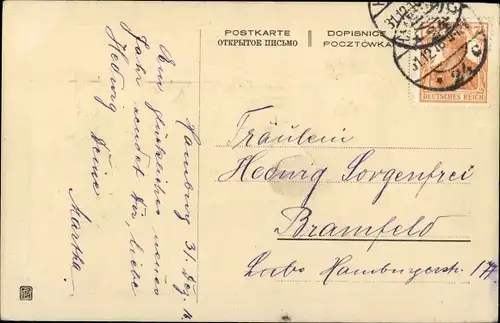 POSTKARTE
ОТКРЫТОЕ ПИСЬМО
DOPISNICE
POCZTÓWKA
31.12.16
DEUTSCHES REICH
Hamburg 31. Dez. 16
Ein glückliches neues
Jahr sendet Dir, liebe
Hedwig Deine
Martha.
Fräulein
Hedwig Sorgenfrei
Bramfeld
Hamburgerstr. 177